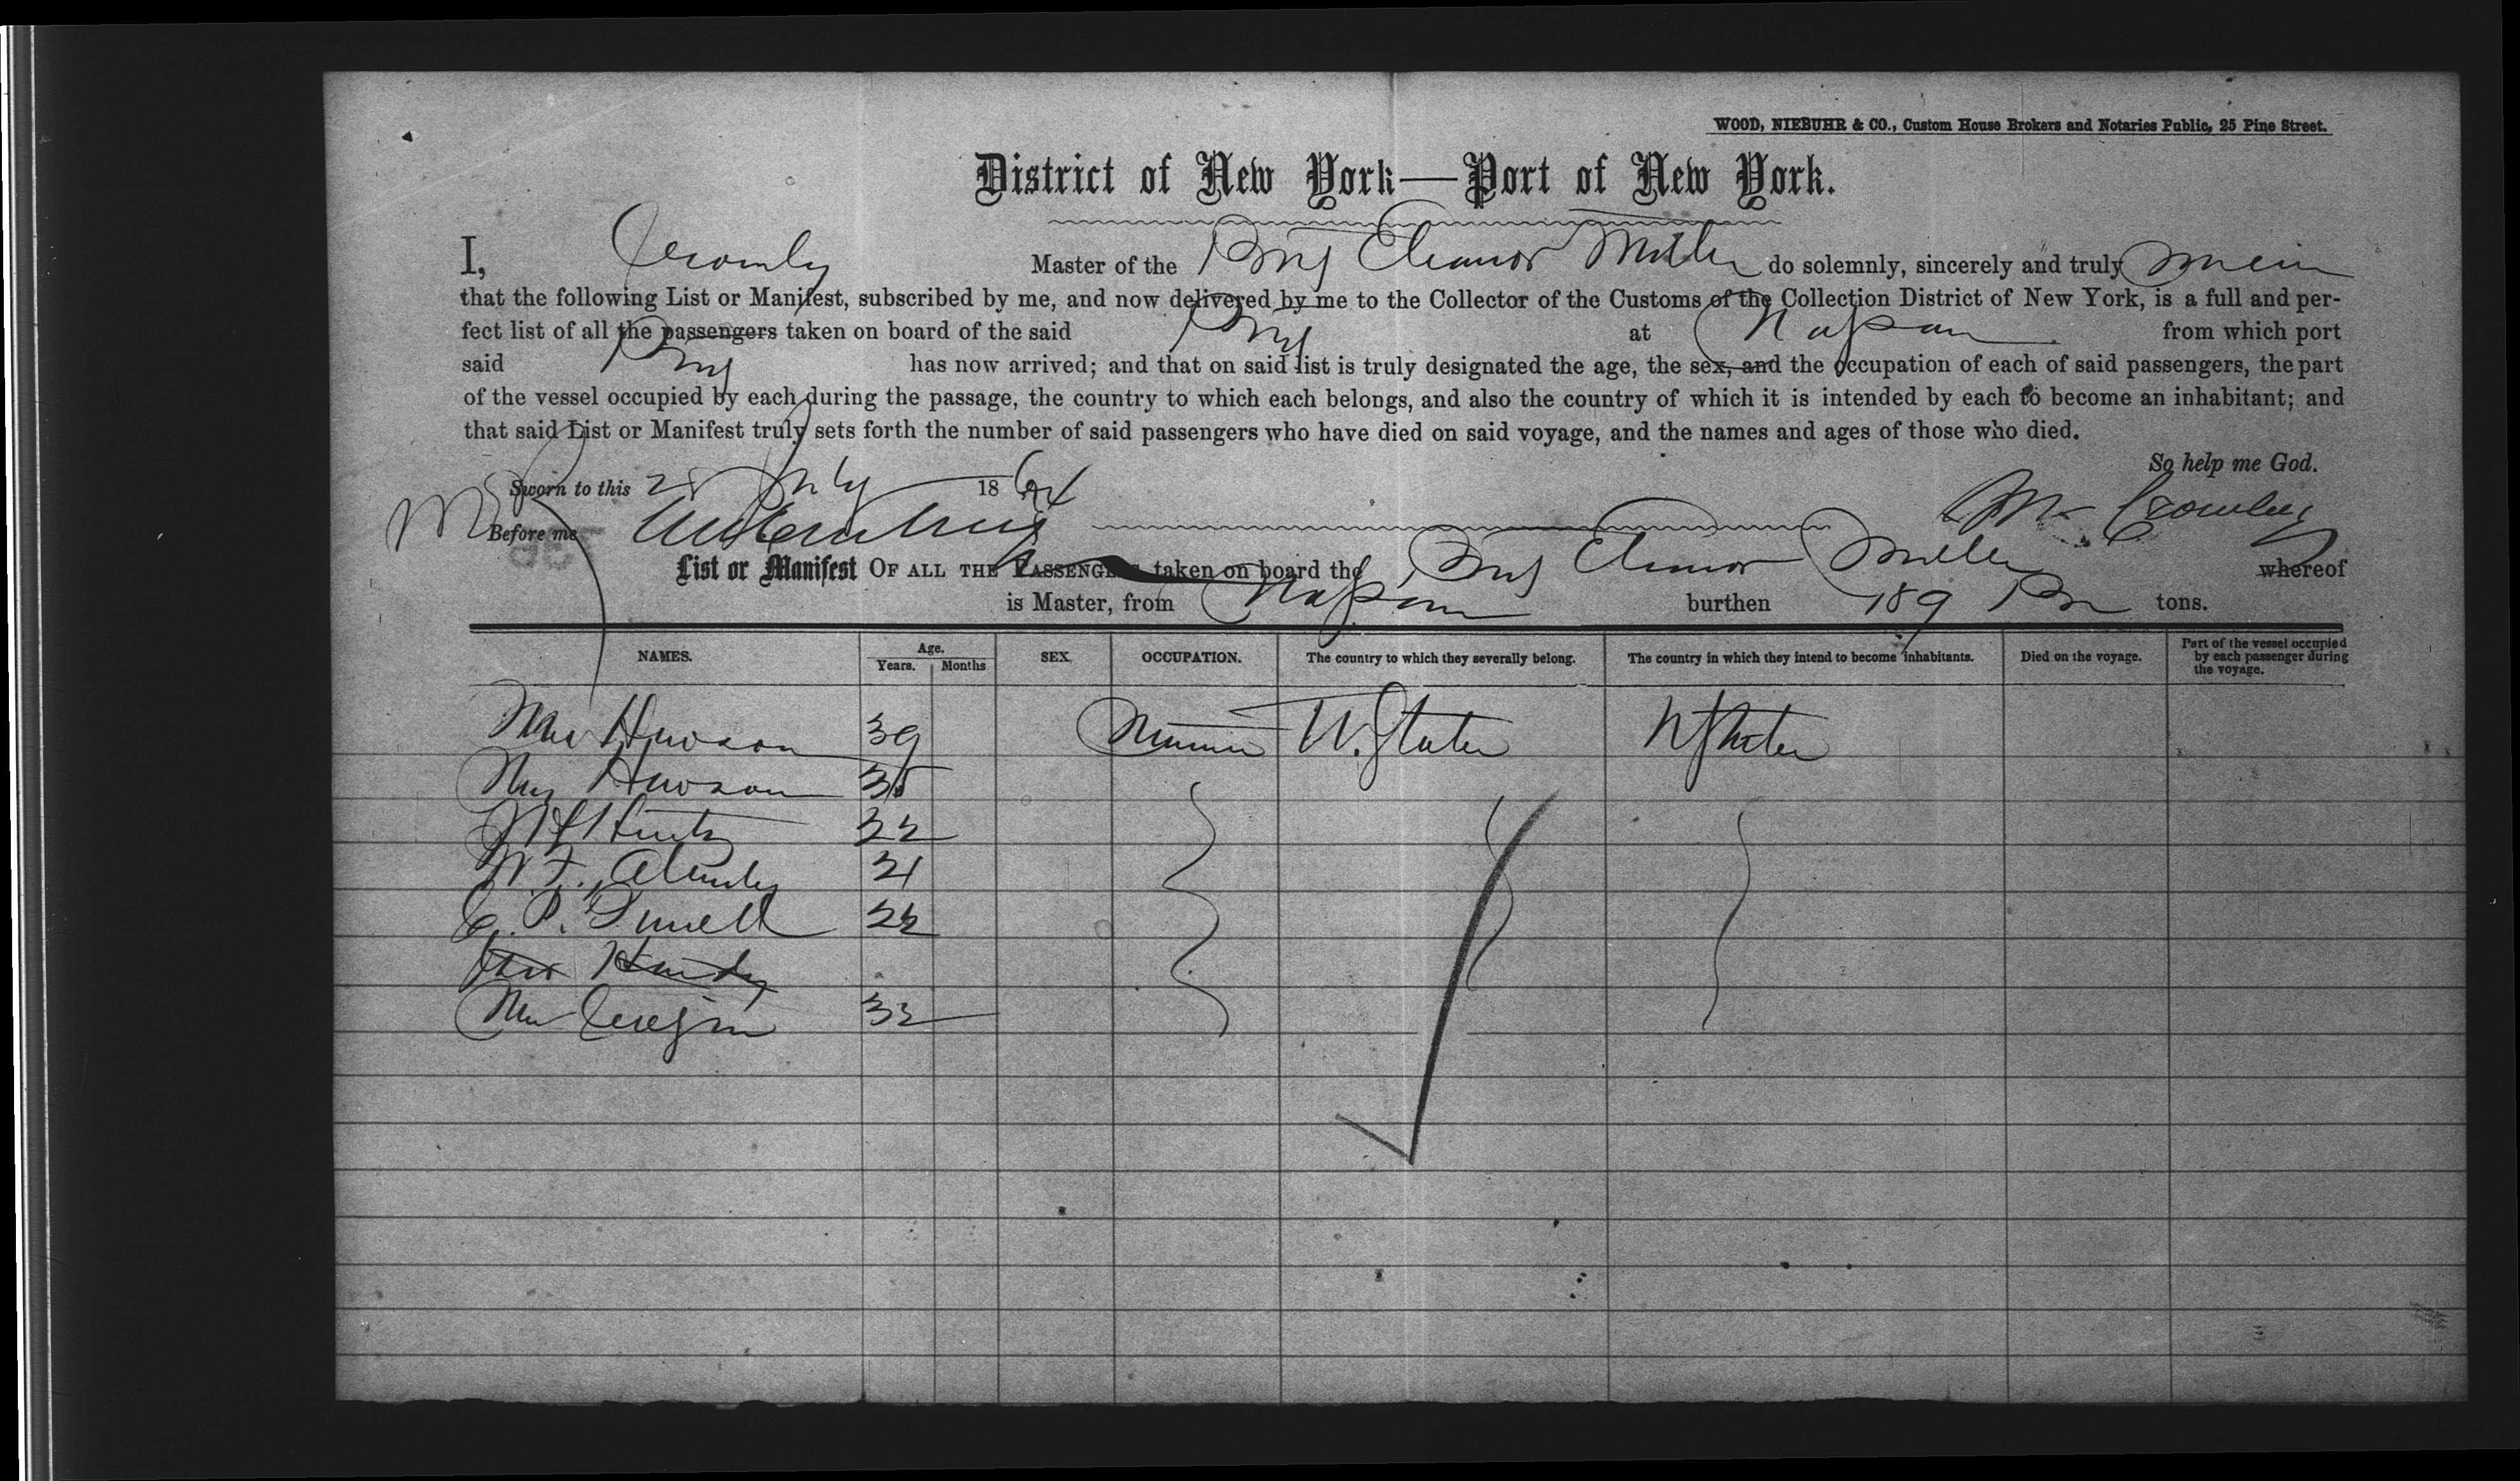 WOOD, NIEBUHR & CO., Custom House Brokers and Notaries Public, 25 Pine Street.
District of New York—Port of New York.
I, Master of the Brig Eleanor Miller do solemnly, sincerely and truly swear
that the following List or Manifest, subscribed by me, and now delivered by me to the Collector of the Customs of the Collection District of New York, is a full and per-
fect list of all the passengers taken on board of the said Brig at Nassau from which port
said Brig has now arrived; and that on said list is truly designated the age, the sex, and the occupation of each of said passengers, the part
of the vessel occupied by each during the passage, the country to which each belongs, and also the country of which it is intended by each to become an inhabitant; and
that said List or Manifest truly sets forth the number of said passengers who have died on said voyage, and the names and ages of those who died.
So help me God.
Sworn to this 25 July 1864
M Crowley
Before me
List or Manifest OF ALL THE PASSENGERS taken on board the Brig Eleanor Miller whereof
is Master, from Nassau burthen 189 tons.
NAMES. Age. Years. Months SEX. OCCUPATION. The country to which they severally belong. The country in which they intend to become inhabitants. Died on the voyage. Part of the vessel occupied by each passenger during the voyage.
39 U. States U States
35
32
W. F. 21
C. P. 22
32